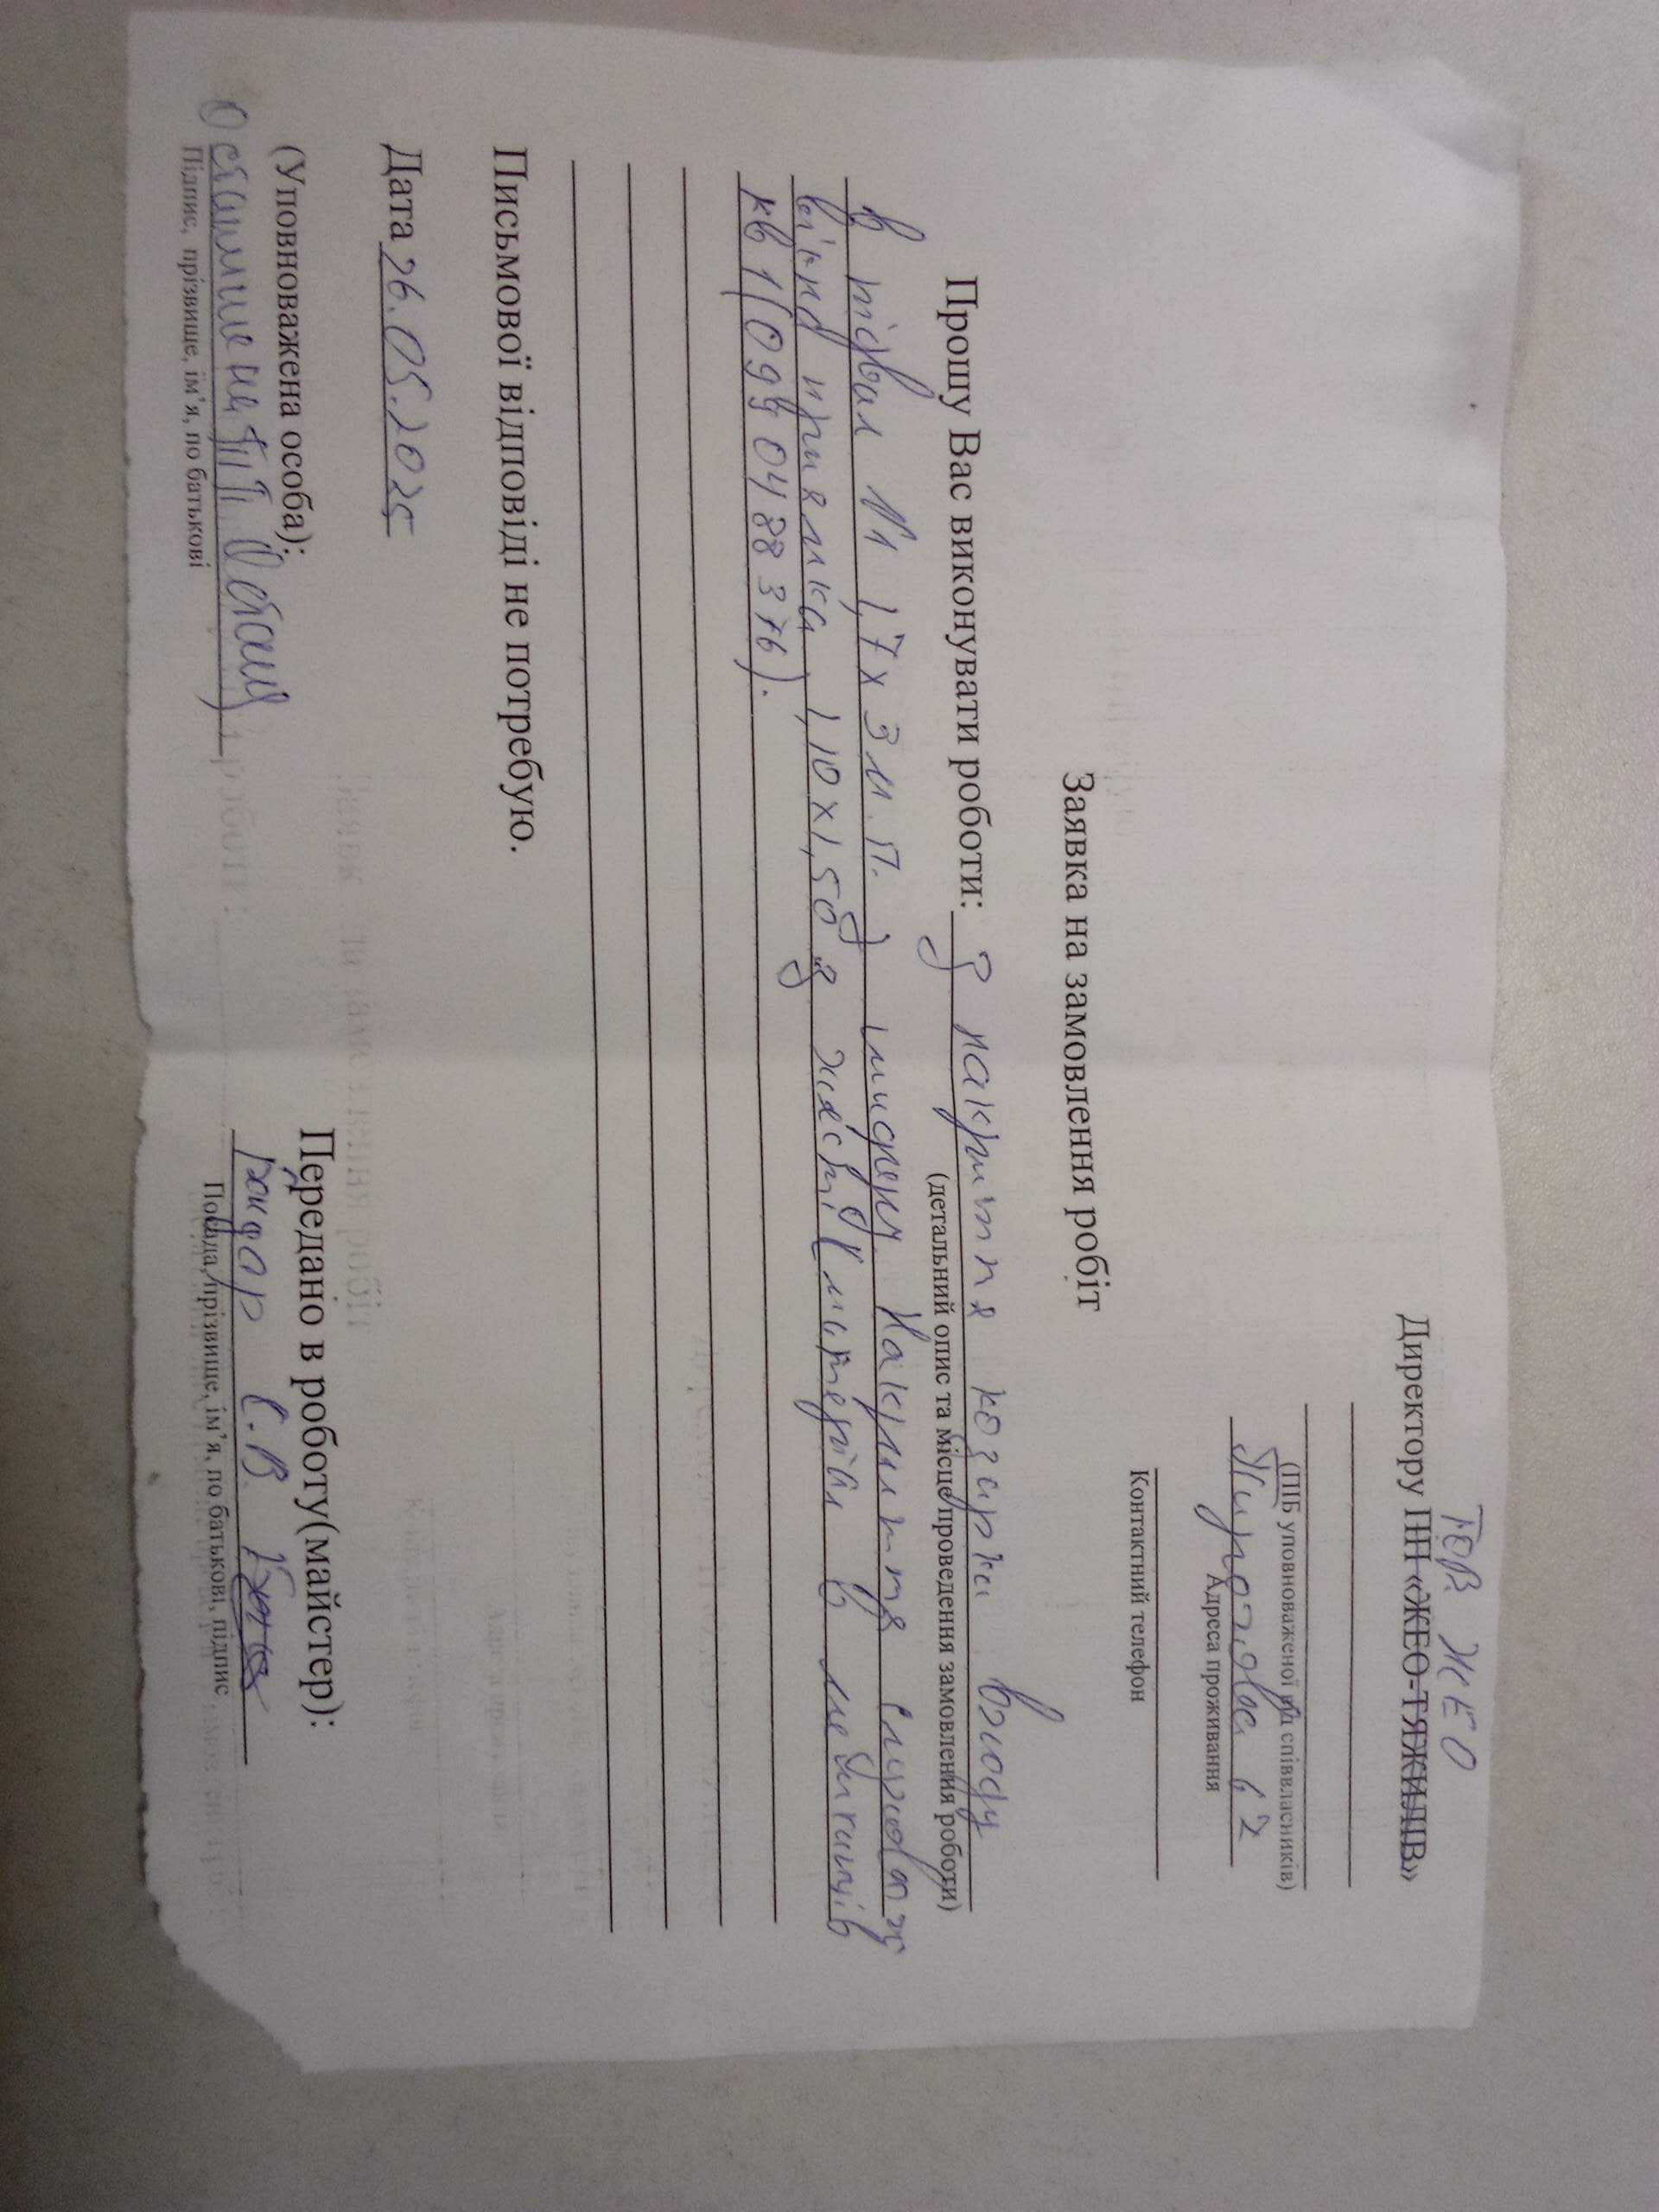 ТОВ ЖЕО
Директору ПП «ЖЕО-ТЯЖИЛІВ»
(ПІБ уповноваженої від співвласників)
6 2
Адреса проживання
Контактний телефон
Заявка на замовлення робіт
Прошу Вас виконувати роботи: З накриття козирка входу
(детальний опис та місце проведення замовлення роботи)
в підвал №1 1,7 х 3 м.п. шиферу. Накриття
приямка 1,10 х 1,50 з жесті (матеріал в мешканців
кв 1 (099 04 88 376).
Письмової відповіді не потребую.
Дата 26.05.2025
(Уповноважена особа):
Підпис, прізвище, ім'я, по батькові
Передано в роботу(майстер):
С.В.
Посада, прізвище, ім'я, по батькові, підпис